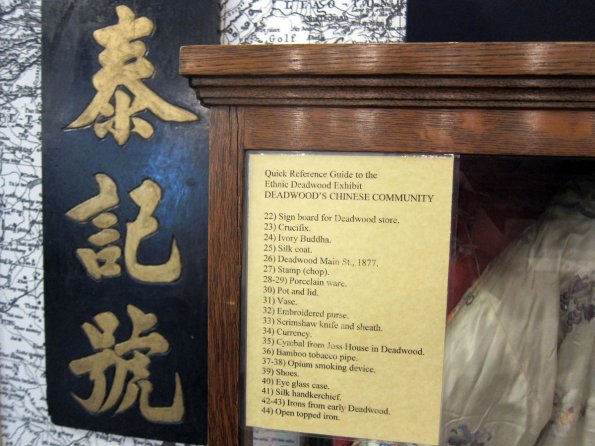 泰
記
號
Golf
Quick Reference Guide to the
Ethnic Deadwood Exhibit
DEADWOOD'S CHINESE COMMUNITY
22) Sign board for Deadwood store.
23) Crucifix.
24) Ivory Buddha.
25) Silk coat.
26) Deadwood Main St., 1877.
27) Stamp (chop).
28-29) Porcelain ware.
30) Pot and lid.
31) Vase.
32) Embroidered purse.
33) Scrimshaw knife and sheath.
34) Currency.
35) Cymbal from Joss House in Deadwood.
36) Bamboo tobacco pipe.
37-38) Opium smoking device.
39) Shoes.
40) Eye glass case.
41) Silk handkerchief.
42-43) Irons from early Deadwood.
44) Open topped iron.